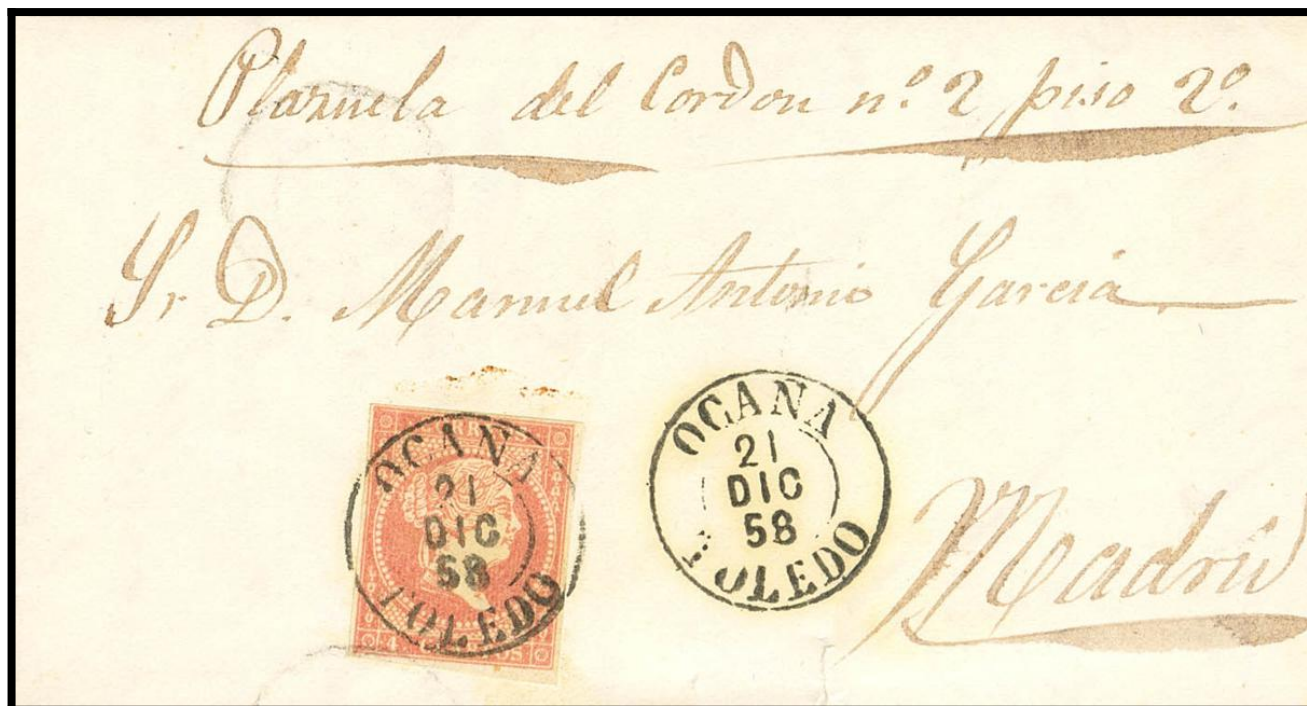 Plazuela del Cordon nº 2 piso 2º.
Sr. D. Manuel Antonio Garcia
OCAÑA
21
DIC
58
TOLEDO
OCAÑA
21
DIC
58
TOLEDO
Madrid